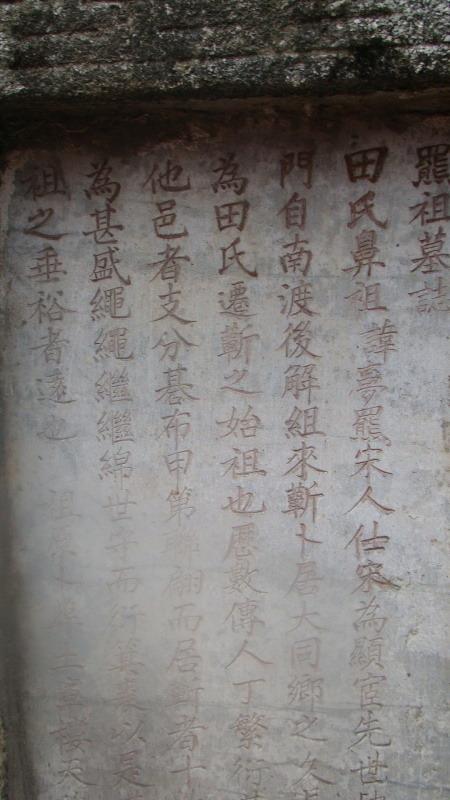 羆祖墓誌
田氏鼻祖諱夢羆宋人仕宋為顯宦先世
門自南渡後解組來蘄卜居大同鄉之久
為田氏遷蘄之始祖也歷數傳人丁繁衍
他邑者支分碁布甲第聯翩而居蘄者十
為甚盛繩繩繼繼綿世守而衍箕裘以是
祖之垂裕者遠也 祖